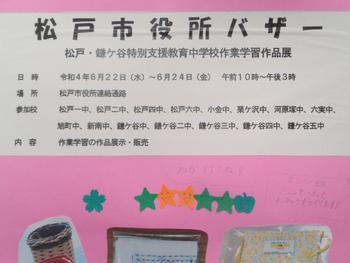 松戸市役所バザー
松戸・鎌ケ谷特別支援教育中学校作業学習作品展
日 時 令和4年6月22日(水)～6月24日(金) 午前10時～午後3時
場 所 松戸市役所連絡通路
参加校 松戸一中、松戸二中、松戸四中、松戸六中、小金中、栗ケ沢中、河原塚中、六実中、
旭町中、新南中、鎌ケ谷中、鎌ケ谷二中、鎌ケ谷三中、鎌ケ谷四中、鎌ケ谷五中
内 容 作業学習の作品展示・販売